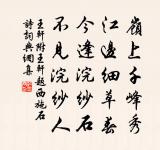 嶺上千峰秀
江邊細草春
今逢浣紗石
不見浣紗人
王軒附王軒題西施石
詩詞典網集